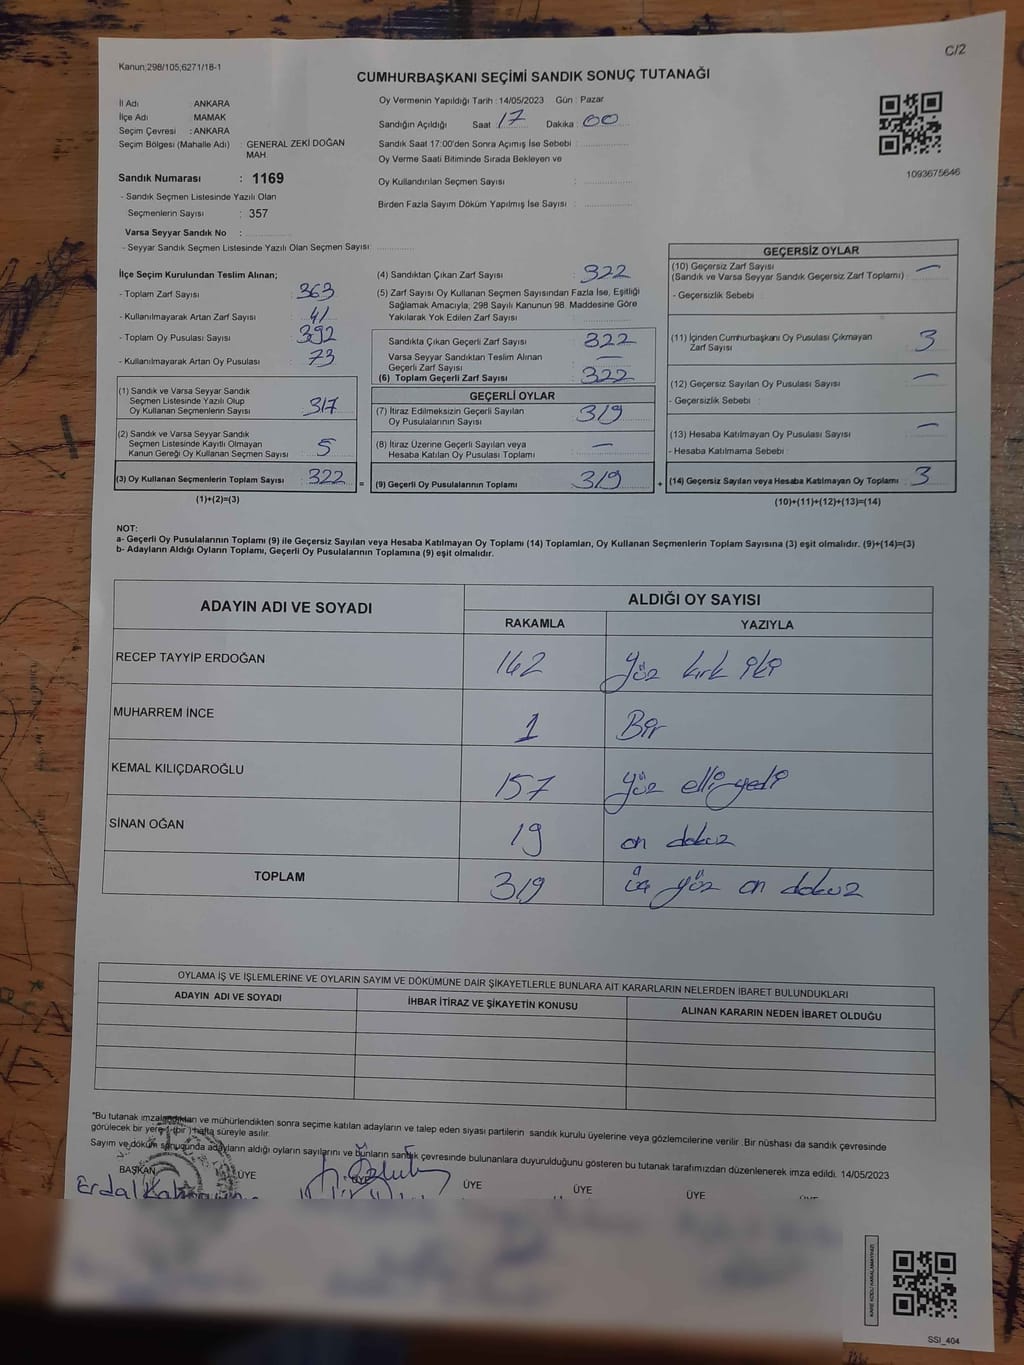 C/2
Kanun;298/105,6271/18-1
CUMHURBAŞKANI SEÇİMİ SANDIK SONUÇ TUTANAĞI
İl Adı : ANKARA
İlçe Adı : MAMAK
Seçim Çevresi : ANKARA
Seçim Bölgesi (Mahalle Adı) : GENERAL ZEKİ DOĞAN
MAH
Sandık Numarası : 1169
- Sandık Seçmen Listesinde Yazılı Olan
Seçmenlerin Sayısı : 357
Varsa Seyyar Sandık No :
- Seyyar Sandık Seçmen Listesinde Yazılı Olan Seçmen Sayısı:
Oy Vermenin Yapıldığı Tarih : 14/05/2023 Gün : Pazar
Sandığın Açıldığı Saat : 17 Dakika : 00
Sandık Saat 17:00'den Sonra Açımış İse Sebebi :
Oy Verme Saati Bitiminde Sırada Bekleyen ve
Oy Kullandırılan Seçmen Sayısı :
Birden Fazla Sayım Döküm Yapılmış İse Sayısı :
1093675646
İlçe Seçim Kurulundan Teslim Alınan;
- Toplam Zarf Sayısı : 363
- Kullanılmayarak Artan Zarf Sayısı : 41
- Toplam Oy Pusulası Sayısı : 392
- Kullanılmayarak Artan Oy Pusulası : 73
(1) Sandık ve Varsa Seyyar Sandık
Seçmen Listesinde Yazılı Olup
Oy Kullanan Seçmenlerin Sayısı : 317
(2) Sandık ve Varsa Seyyar Sandık
Seçmen Listesinde Kayıtlı Olmayan
Kanun Gereği Oy Kullanan Seçmen Sayısı : 5
(3) Oy Kullanan Seçmenlerin Toplam Sayısı : 322 =
(1)+(2)=(3)
(4) Sandıktan Çıkan Zarf Sayısı : 322
(5) Zarf Sayısı Oy Kullanan Seçmen Sayısından Fazla İse, Eşitliği
Sağlamak Amacıyla, 298 Sayılı Kanunun 98. Maddesine Göre
Yakılarak Yok Edilen Zarf Sayısı :
Sandıkta Çıkan Geçerli Zarf Sayısı : 322
Varsa Seyyar Sandıktan Teslim Alınan
Geçerli Zarf Sayısı : —
(6) Toplam Geçerli Zarf Sayısı : 322
GEÇERLİ OYLAR
(7) İtiraz Edilmeksizin Geçerli Sayılan
Oy Pusulalarının Sayısı : 319
(8) İtiraz Üzerine Geçerli Sayılan veya
Hesaba Katılan Oy Pusulası Toplamı : —
(9) Geçerli Oy Pusulalarının Toplamı : 319 +
GEÇERSİZ OYLAR
(10) Geçersiz Zarf Sayısı : —
(Sandık ve Varsa Seyyar Sandık Geçersiz Zarf Toplamı)
- Geçersizlik Sebebi :
(11) İçinden Cumhurbaşkanı Oy Pusulası Çıkmayan
Zarf Sayısı : 3
(12) Geçersiz Sayılan Oy Pusulası Sayısı : —
- Geçersizlik Sebebi :
(13) Hesaba Katılmayan Oy Pusulası Sayısı : —
- Hesaba Katılmama Sebebi :
(14) Geçersiz Sayılan veya Hesaba Katılmayan Oy Toplamı : 3
(10)+(11)+(12)+(13)=(14)
NOT:
a- Geçerli Oy Pusulalarının Toplamı (9) ile Geçersiz Sayılan veya Hesaba Katılmayan Oy Toplamı (14) Toplamları, Oy Kullanan Seçmenlerin Toplam Sayısına (3) eşit olmalıdır. (9)+(14)=(3)
b- Adayların Aldığı Oyların Toplamı, Geçerli Oy Pusulalarının Toplamına (9) eşit olmalıdır.
ADAYIN ADI VE SOYADI ALDIĞI OY SAYISI
RAKAMLA YAZIYLA
RECEP TAYYİP ERDOĞAN 142 yüz kırk iki
MUHARREM İNCE 1 Bir
KEMAL KILIÇDAROĞLU 157 yüz elli yedi
SİNAN OĞAN 19 on dokuz
TOPLAM 319 üç yüz on dokuz
OYLAMA İŞ VE İŞLEMLERİNE VE OYLARIN SAYIM VE DÖKÜMÜNE DAİR ŞİKAYETLERLE BUNLARA AİT KARARLARIN NELERDEN İBARET BULUNDUKLARI
ADAYIN ADI VE SOYADI İHBAR İTİRAZ VE ŞİKAYETİN KONUSU ALINAN KARARIN NEDEN İBARET OLDUĞU
*Bu tutanak imzalandıktan ve mühürlendikten sonra seçime katılan adayların ve talep eden siyasi partilerin sandık kurulu üyelerine veya gözlemcilerine verilir .Bir nüshası da sandık çevresinde
görülecek bir yere 1 (bir ) hafta süreyle asılır.
Sayım ve döküm sonucunda adayların aldığı oyların sayılarını ve bunların sandık çevresinde bulunanlara duyurulduğunu gösteren bu tutanak tarafımızdan düzenlenerek imza edildi. 14/05/2023
BAŞKAN ÜYE ÜYE ÜYE ÜYE ÜYE
Erdal
KARE KODU KARALAMAYINIZ!
SSI_404